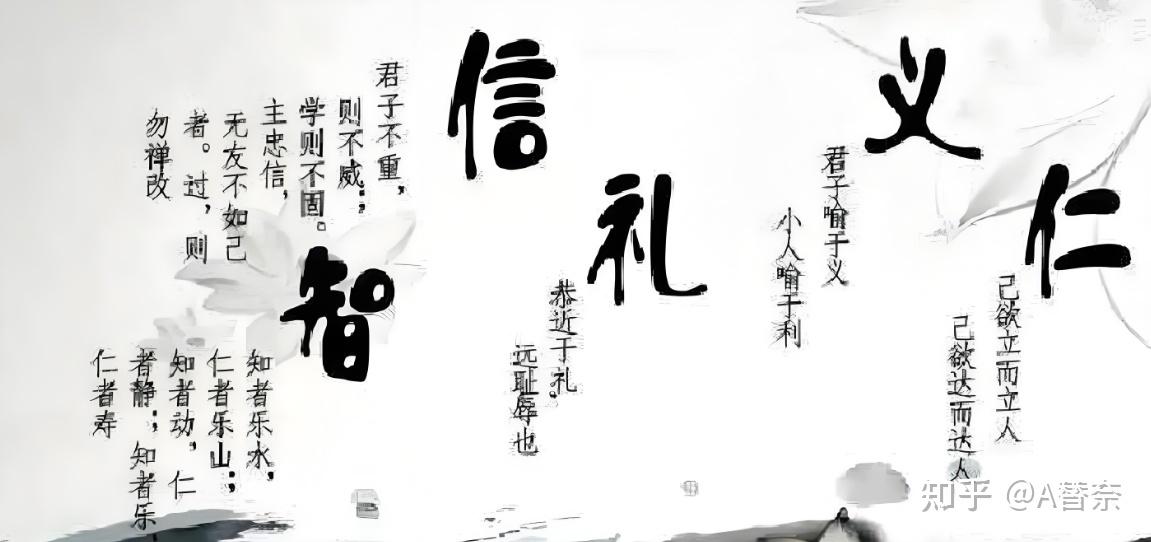 仁
己欲立而立人
己欲达而达人
义
君子喻于义
小人喻于利
礼
恭近于礼,
远耻辱也
信
君子不重,
则不威;
学则不固。
主忠信,
无友不如己
者。过,则
勿禅改
智
知者乐水,
仁者乐山;
知者动,仁
者静;知者乐
仁者寿
知乎 @A替奈